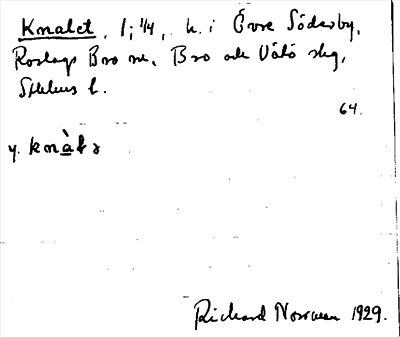 Knalet, 1; 1/4, h. i Övre Söderby,
Roslags Bro sn, Bro och Vätö skg,
Sthlms l.
64.
y. knàlə
Richard Norrman 1929.